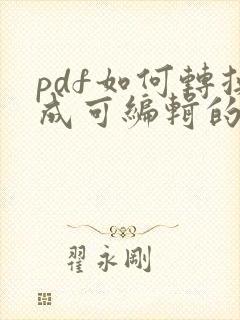 pdf如何轉
成可編輯的
翟永剛